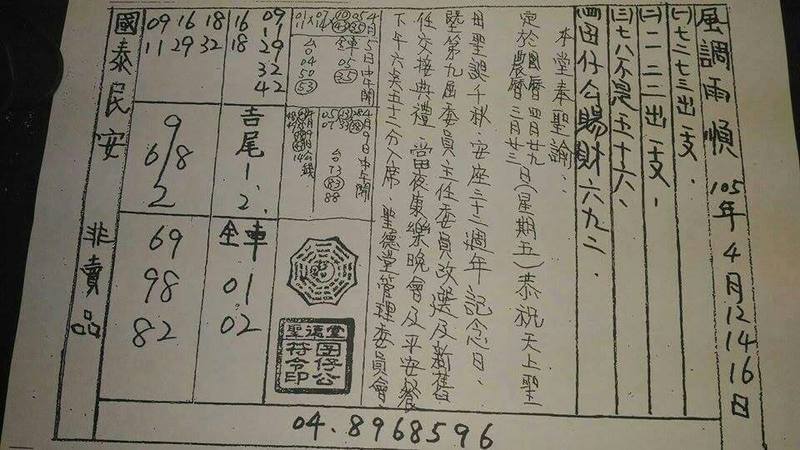 風調雨順 105年4月12 14 16日
(一)七二七三出一支、
(二)一一二二出一支、
(三)七八不是五十六、
(四)囝仔公賜財六九二、
本堂奉聖諭：
定於國曆四月廿九日(星期五)恭祝天上聖
農曆三月廿三
母聖誕千秋、安座三十二週年記念日、
暨第九屆委員主任委員改選及新舊
任交接典禮 當夜康樂晚會及平安餐
下午六點五十二分入席、聖德堂管理委員會、
4月5日中午開
全車 05
台
04
50
53
4月9日中午開
台
73
83
88
聖德堂
囝仔公
符令印
09 16
29 18
32
42
吉尾1、2、
全車
01
02
09 16 18
11 29 32
9
6/8
2
69
98
82
國泰民安 非賣品
04.8968596